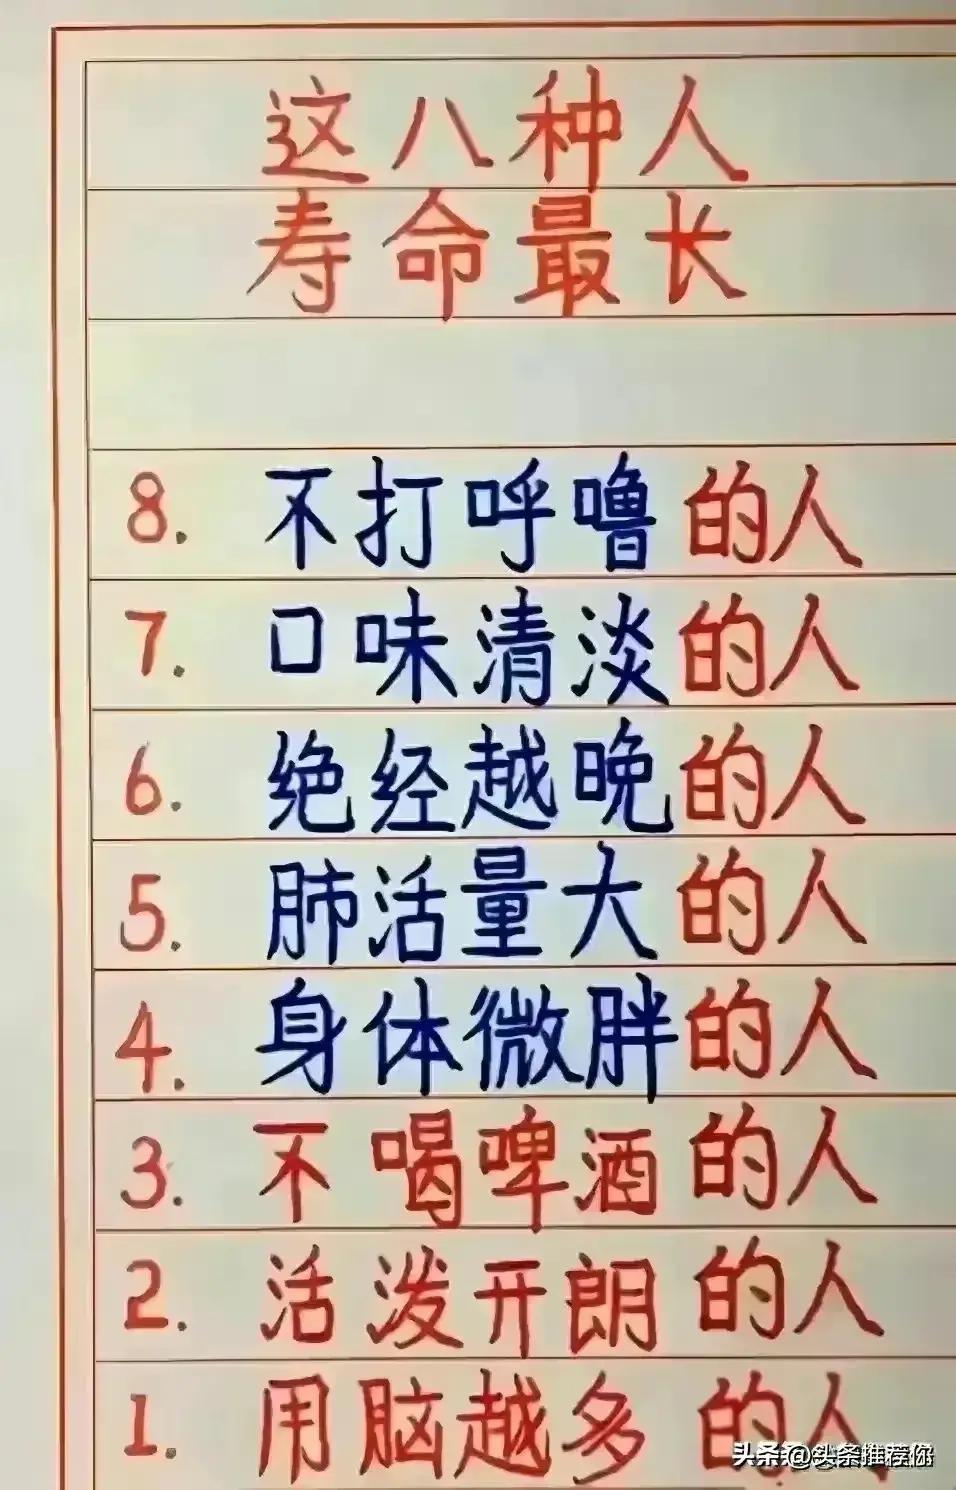 这八种人
寿命最长
8. 不打呼噜的人
7. 口味清淡的人
6. 绝经越晚的人
5. 肺活量大的人
4. 身体微胖的人
3. 不喝啤酒的人
2. 活泼开朗的人
1. 用脑越多的人
头条@头条推荐你